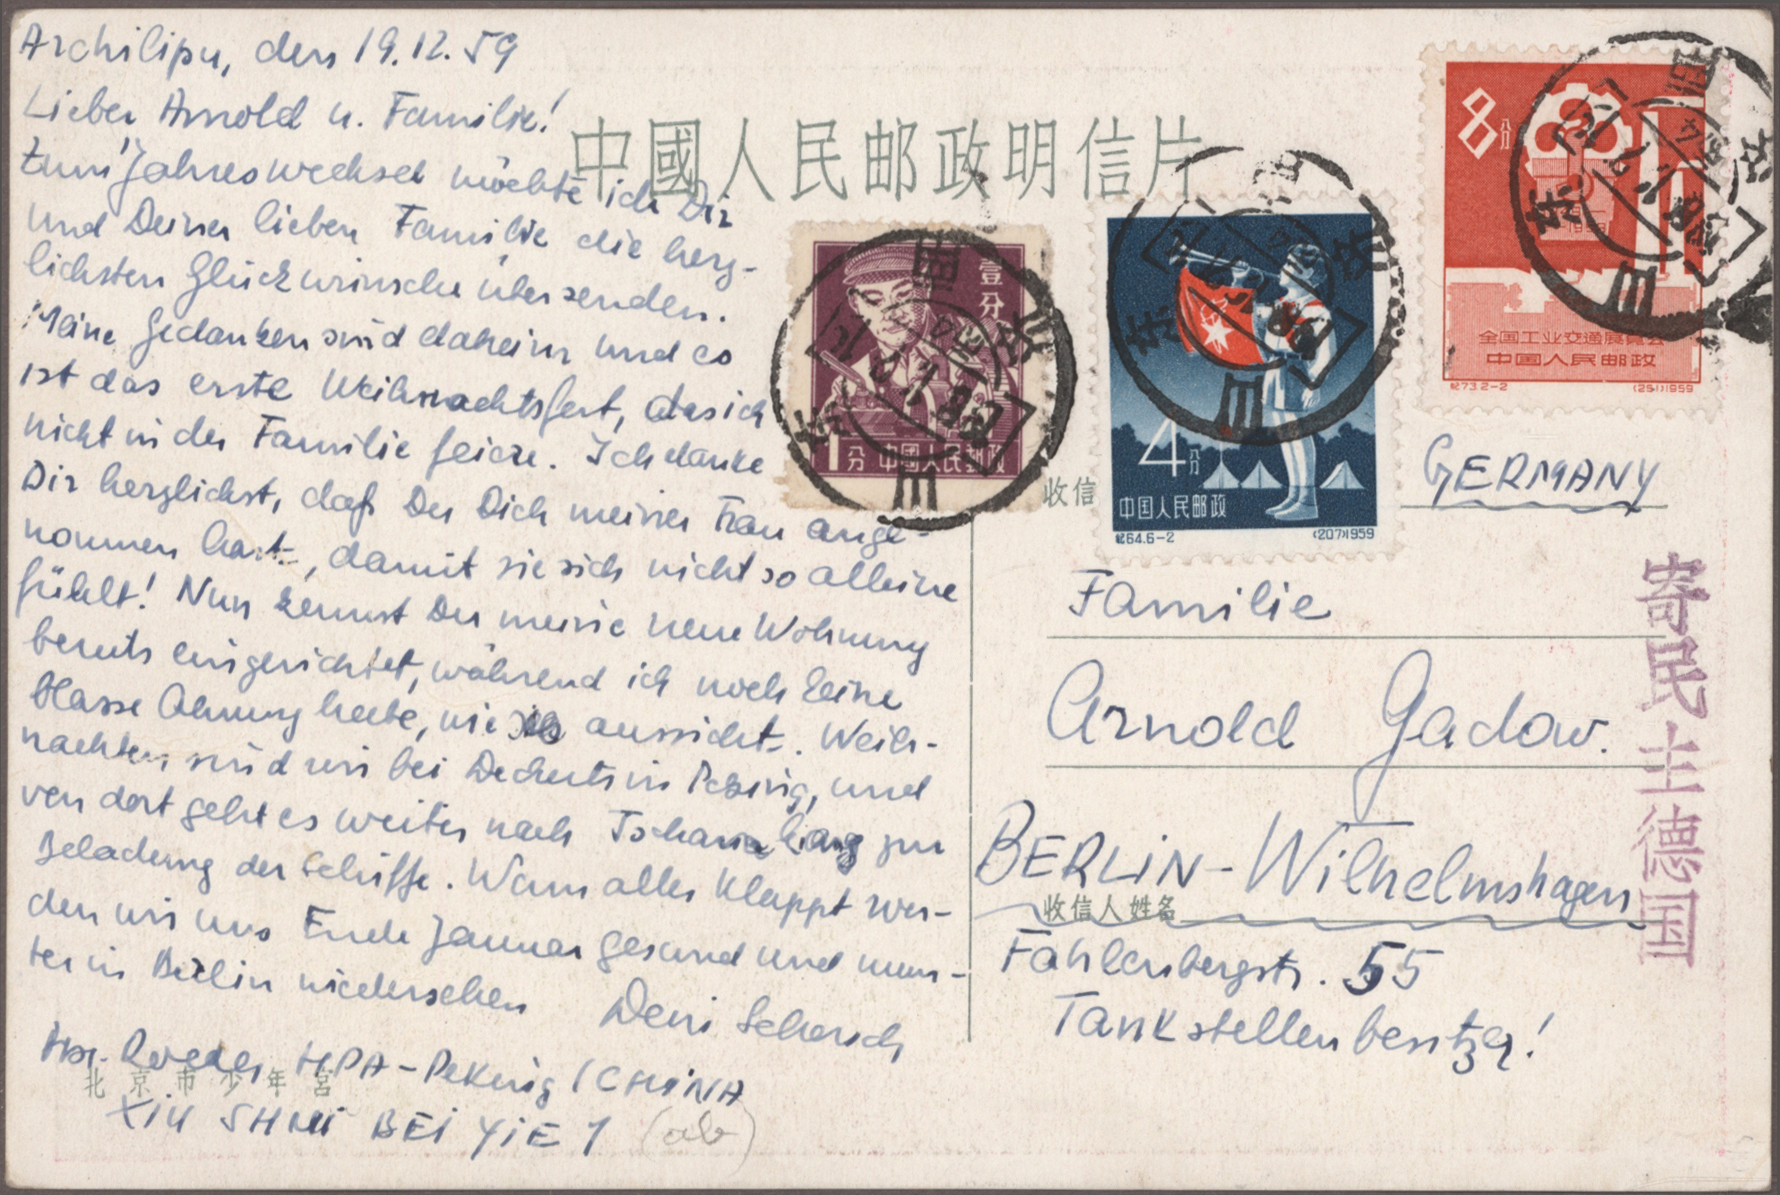 Archilipu, den 19.12.59
Lieber Arnold u. Familie!
Zum Jahreswechsel möchte ich Dir
und Deiner lieben Familie die herz-
lichsten Glückwünsche übersenden.
Meine Gedanken sind daheim und es
ist das erste Weihnachtsfest, das ich
nicht in der Familie feiere. Ich danke
Dir herzlichst, daß Du Dich meiner Frau ange-
nommen hast, damit sie sich nicht so alleine
fühlt! Nun kennst Du meine neue Wohnung
bereits eingerichtet, während ich noch keine
blasse Ahnung habe, wie es aussieht. Weih-
nachten sind wir bei in Peking, und
von dort geht es weiter nach zur
Beladung der Schiffe. Wenn alles klappt wer-
den wir uns Ende Januar gesund und mun-
ter in Berlin wiedersehen Dein
Abs. HPA-Peking / CHINA
XIU SHUI BEI YIE 1 (ab)
北京市少年宮
中國人民邮政明信片
壹分
1分 中国人民邮政
4分
中国人民邮政
紀64.6-2 (207)1959
8分
全国工业交通展覽会
中国人民邮政
紀73.2-2 (251)1959
收信
GERMANY
Familie
Arnold Gadow.
BERLIN-Wilhelmshagen
收信人姓名
Fahlenbergstr. 55
Tankstellenbesitzer!
寄民主德国